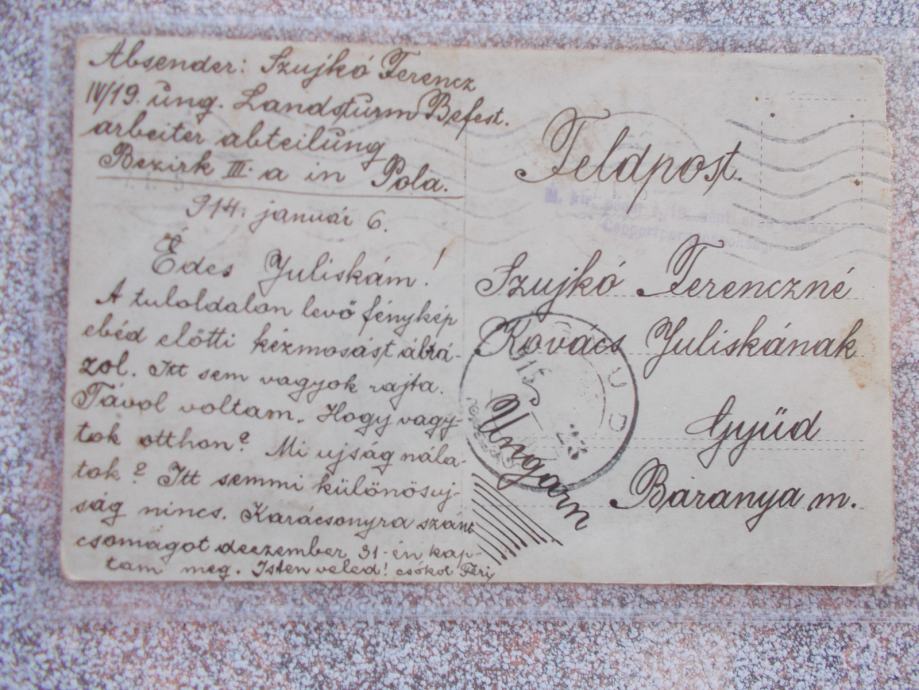 Absender: Szujkó Ferencz
IV/19. ung. Landsturm Befest.
arbeiter abteilung
Bezirk III. a in Pola.
914. január 6.
Édes Juliskám!
A tuloldalon levő fénykép
ebéd előtti kézmosást ábrá-
zol. Itt sem vagyok rajta.
Távol voltam. Hogy vagy-
tok otthon? Mi ujság nála-
tok? Itt semmi különös uj-
ság nincs. Karácsonyra szánt
csomagot deczember 31-én kap-
tam meg. Isten veled! csókol Feri
Feldpost.
Szujkó Ferenczné
Kovács Juliskának
Gyűd
Baranya m.
Ungarn